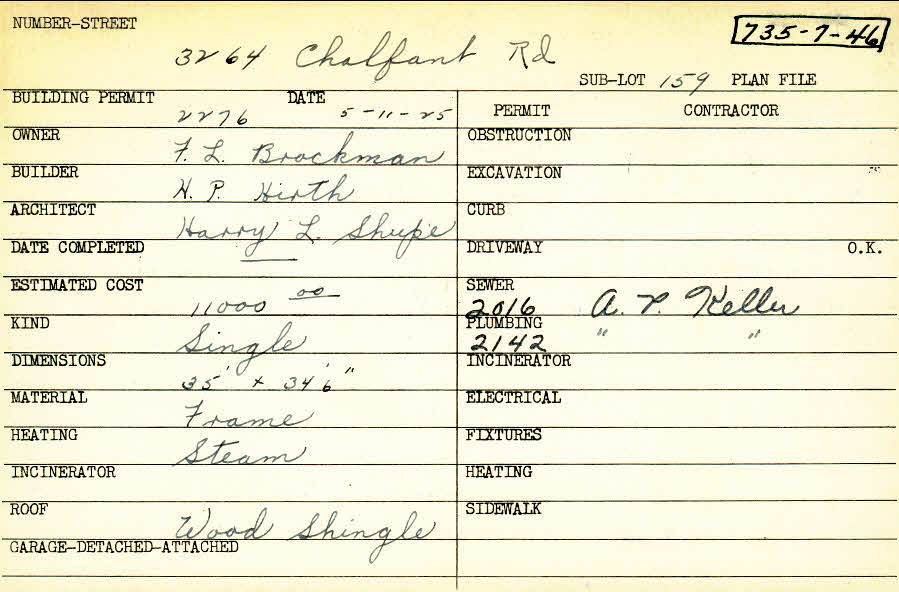 NUMBER-STREET
735-7-46
3264 Chalfant Rd
SUB-LOT 159 PLAN FILE
BUILDING PERMIT DATE
2276 5-11-25
PERMIT CONTRACTOR
OWNER
F. L. Brockman
OBSTRUCTION
BUILDER
H. P. Hirth
EXCAVATION
ARCHITECT
Harry L. Shupe
CURB
DATE COMPLETED
DRIVEWAY O.K.
ESTIMATED COST
11000 00
SEWER
2016 A. P. Keller
KIND
Single
PLUMBING
2142 " "
DIMENSIONS
35' x 34'6"
INCINERATOR
MATERIAL
Frame
ELECTRICAL
HEATING
Steam
FIXTURES
INCINERATOR
HEATING
ROOF
Wood Shingle
SIDEWALK
GARAGE-DETACHED-ATTACHED